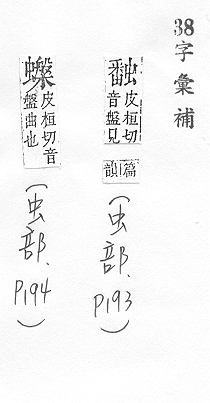 38字彙補
皮桓切
音盤見
篇
韻
(虫部. P193)
皮桓切音
盤曲也
(虫部. P194)